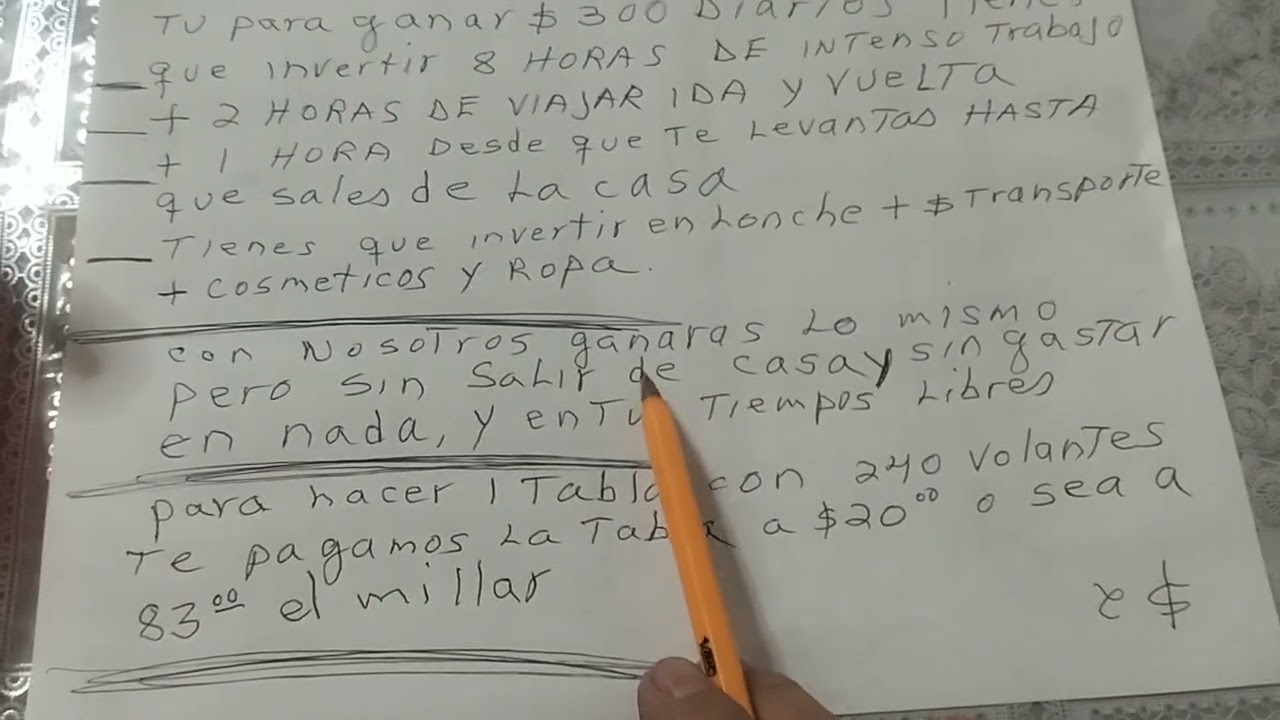 TU para ganar $ 300 Diarios Tienes
que invertir 8 HORAS DE INTENSO Trabajo
+ 2 HORAS DE VIAJAR IDA y VUELTA
+ 1 HORA Desde que Te Levantas HASTA
que sales de La casa
Tienes que invertir en Lonche + $ Transporte
+ cosmeticos y ROPA.
con NosoTros ganaras Lo mismo
pero sin SaLir de casa y sin gastar
en nada, y en Tu Tiempos Libres
para hacer 1 Tabla con 240 volanTes
Te pagamos La Tabla a $20.00 o sea a
83.00 el millar